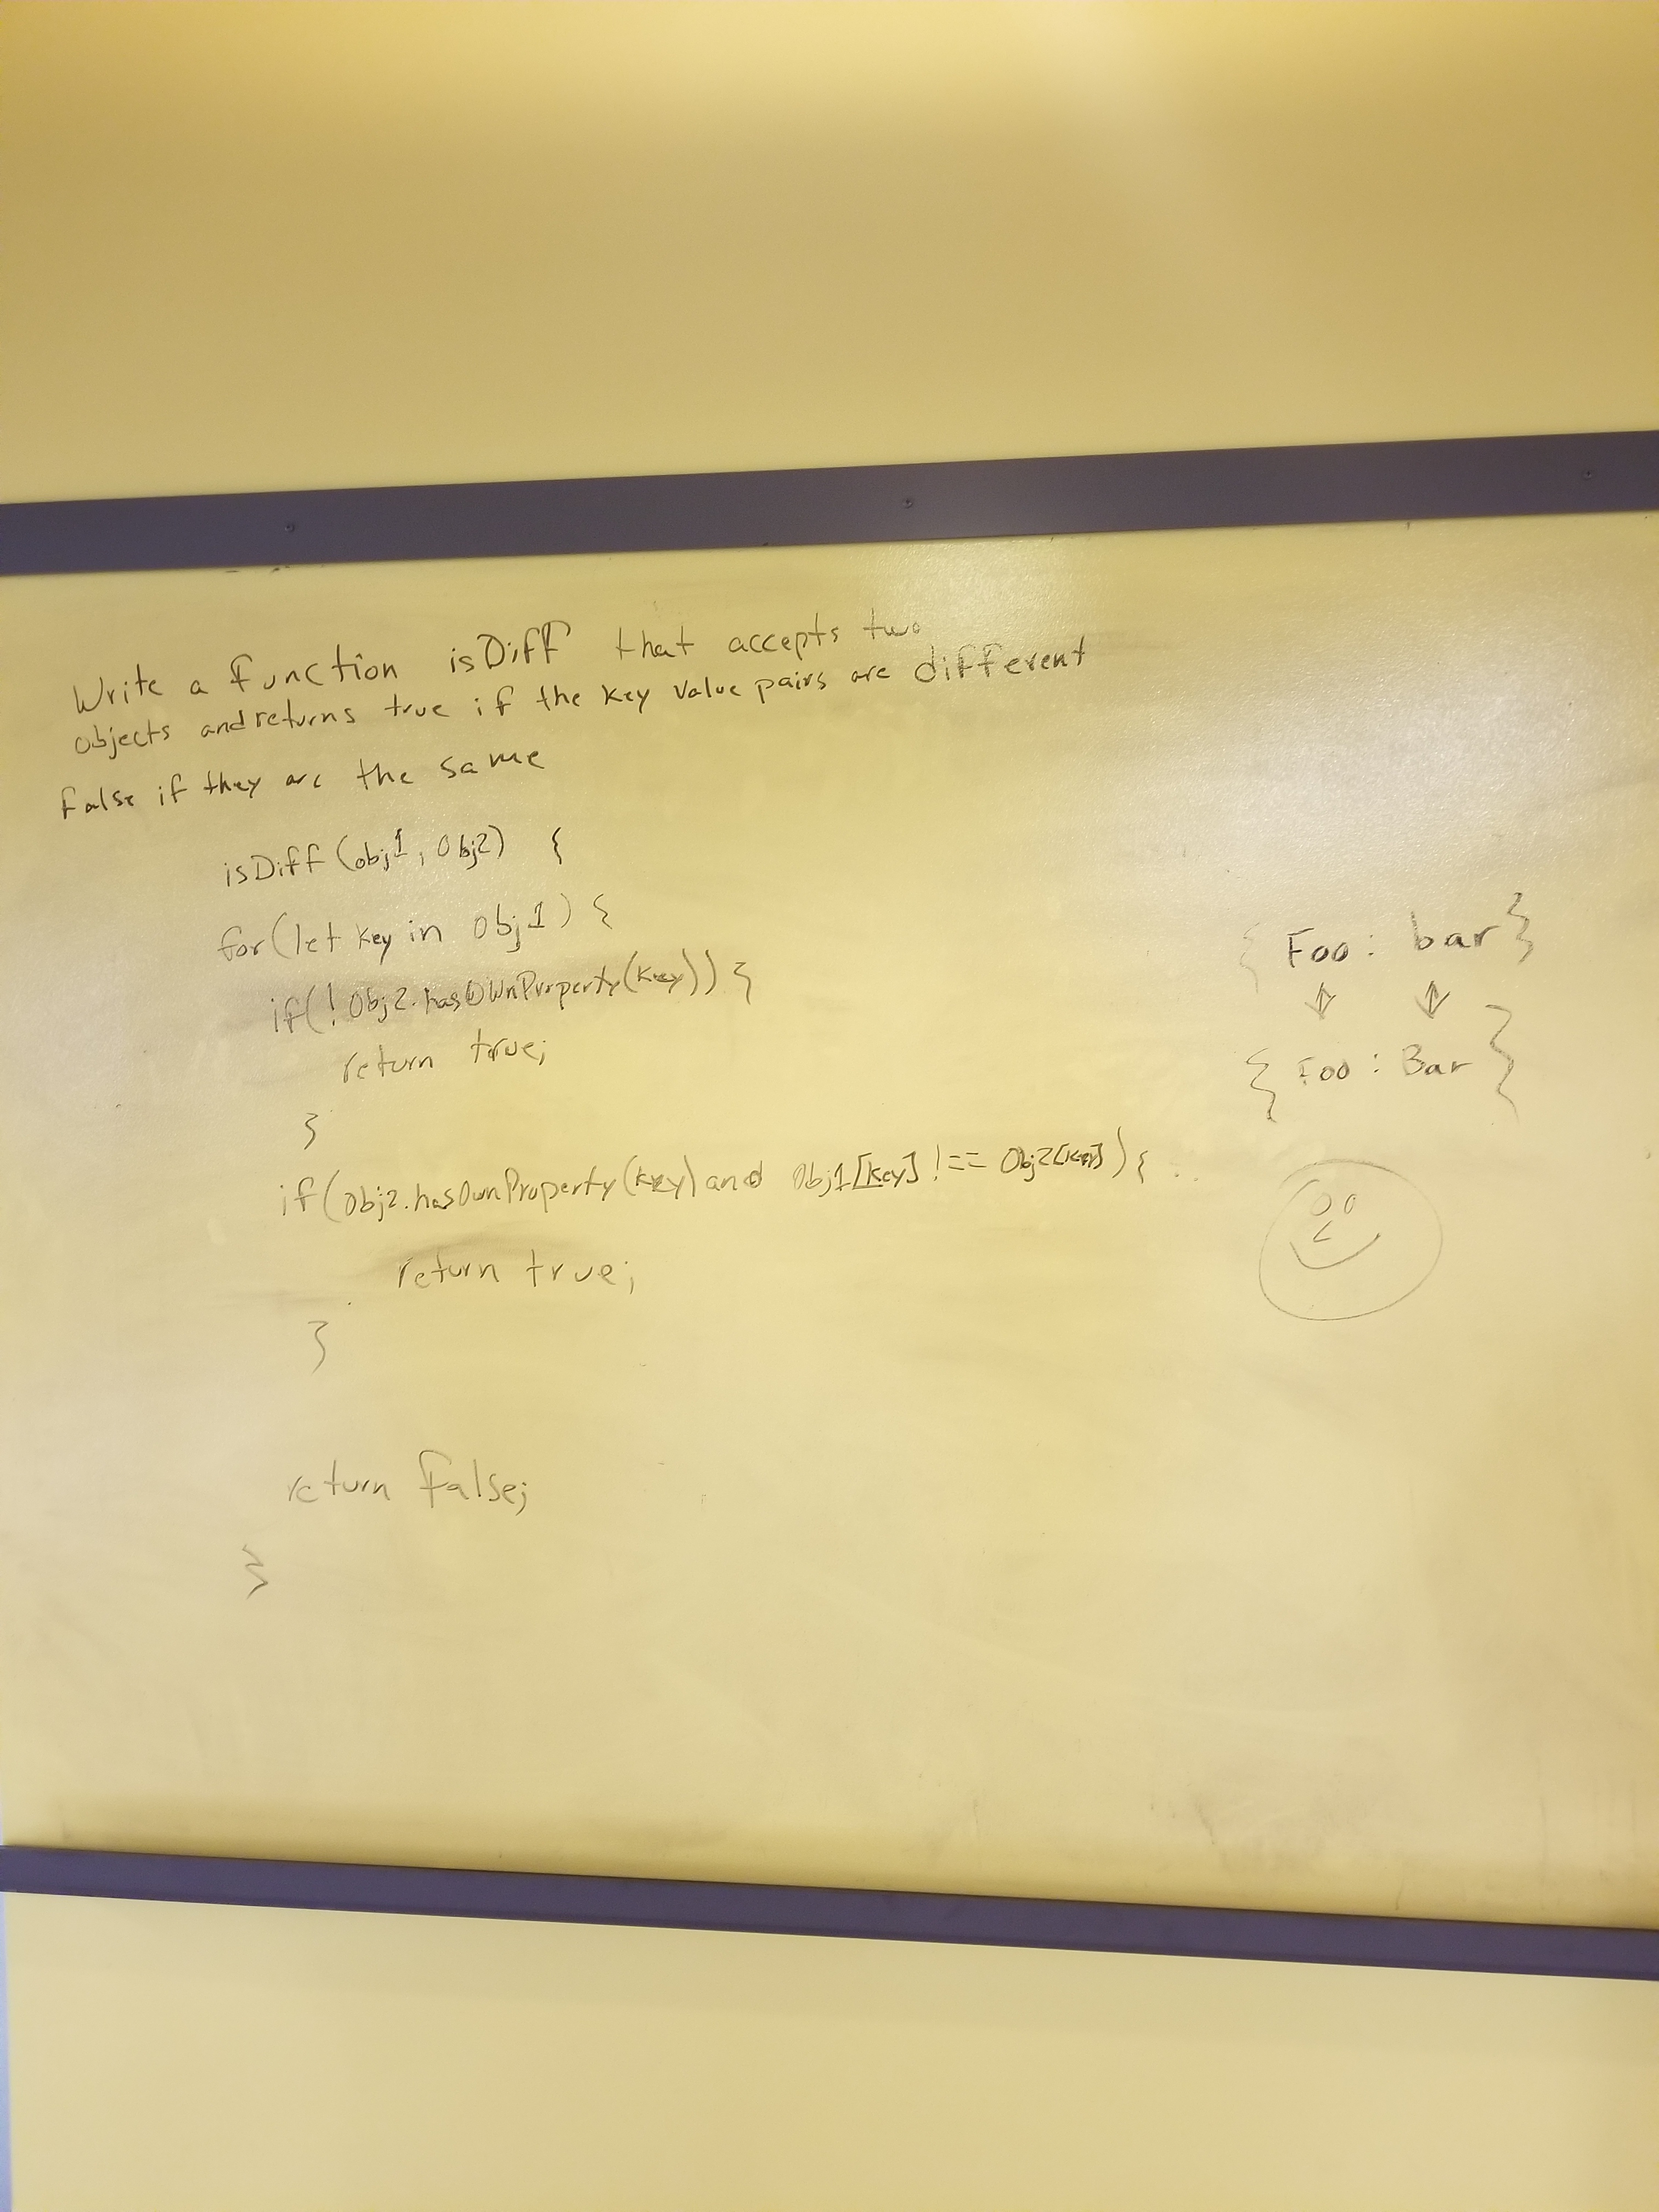 Write a function isDiff that accepts two
objects and returns true if the key value pairs are different
false if they are the same
isDiff (obj1, Obj2) {
for (let key in Obj1) {
if(! Obj2.hasOwnProperty(key)) {
return true;
}
if (Obj2.hasOwnProperty(key) and Obj1[key] !== Obj2[key]) {
return true;
}
return false;
}
{ Foo: bar }
{ Foo: Bar }